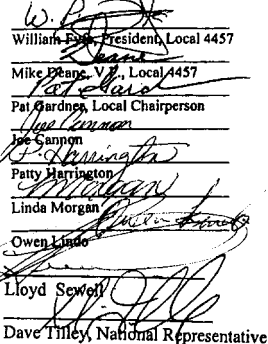 William Fyfe, President, Local 4457
Mike Deane, V.P., Local 4457
Pat Gardner, Local Chairperson
Joe Cannon
Joe Cannon
P. Harrington
Patty Harrington
Linda Morgan
Owen Lindo
Lloyd Sewell
Dave Tilley, National Representative